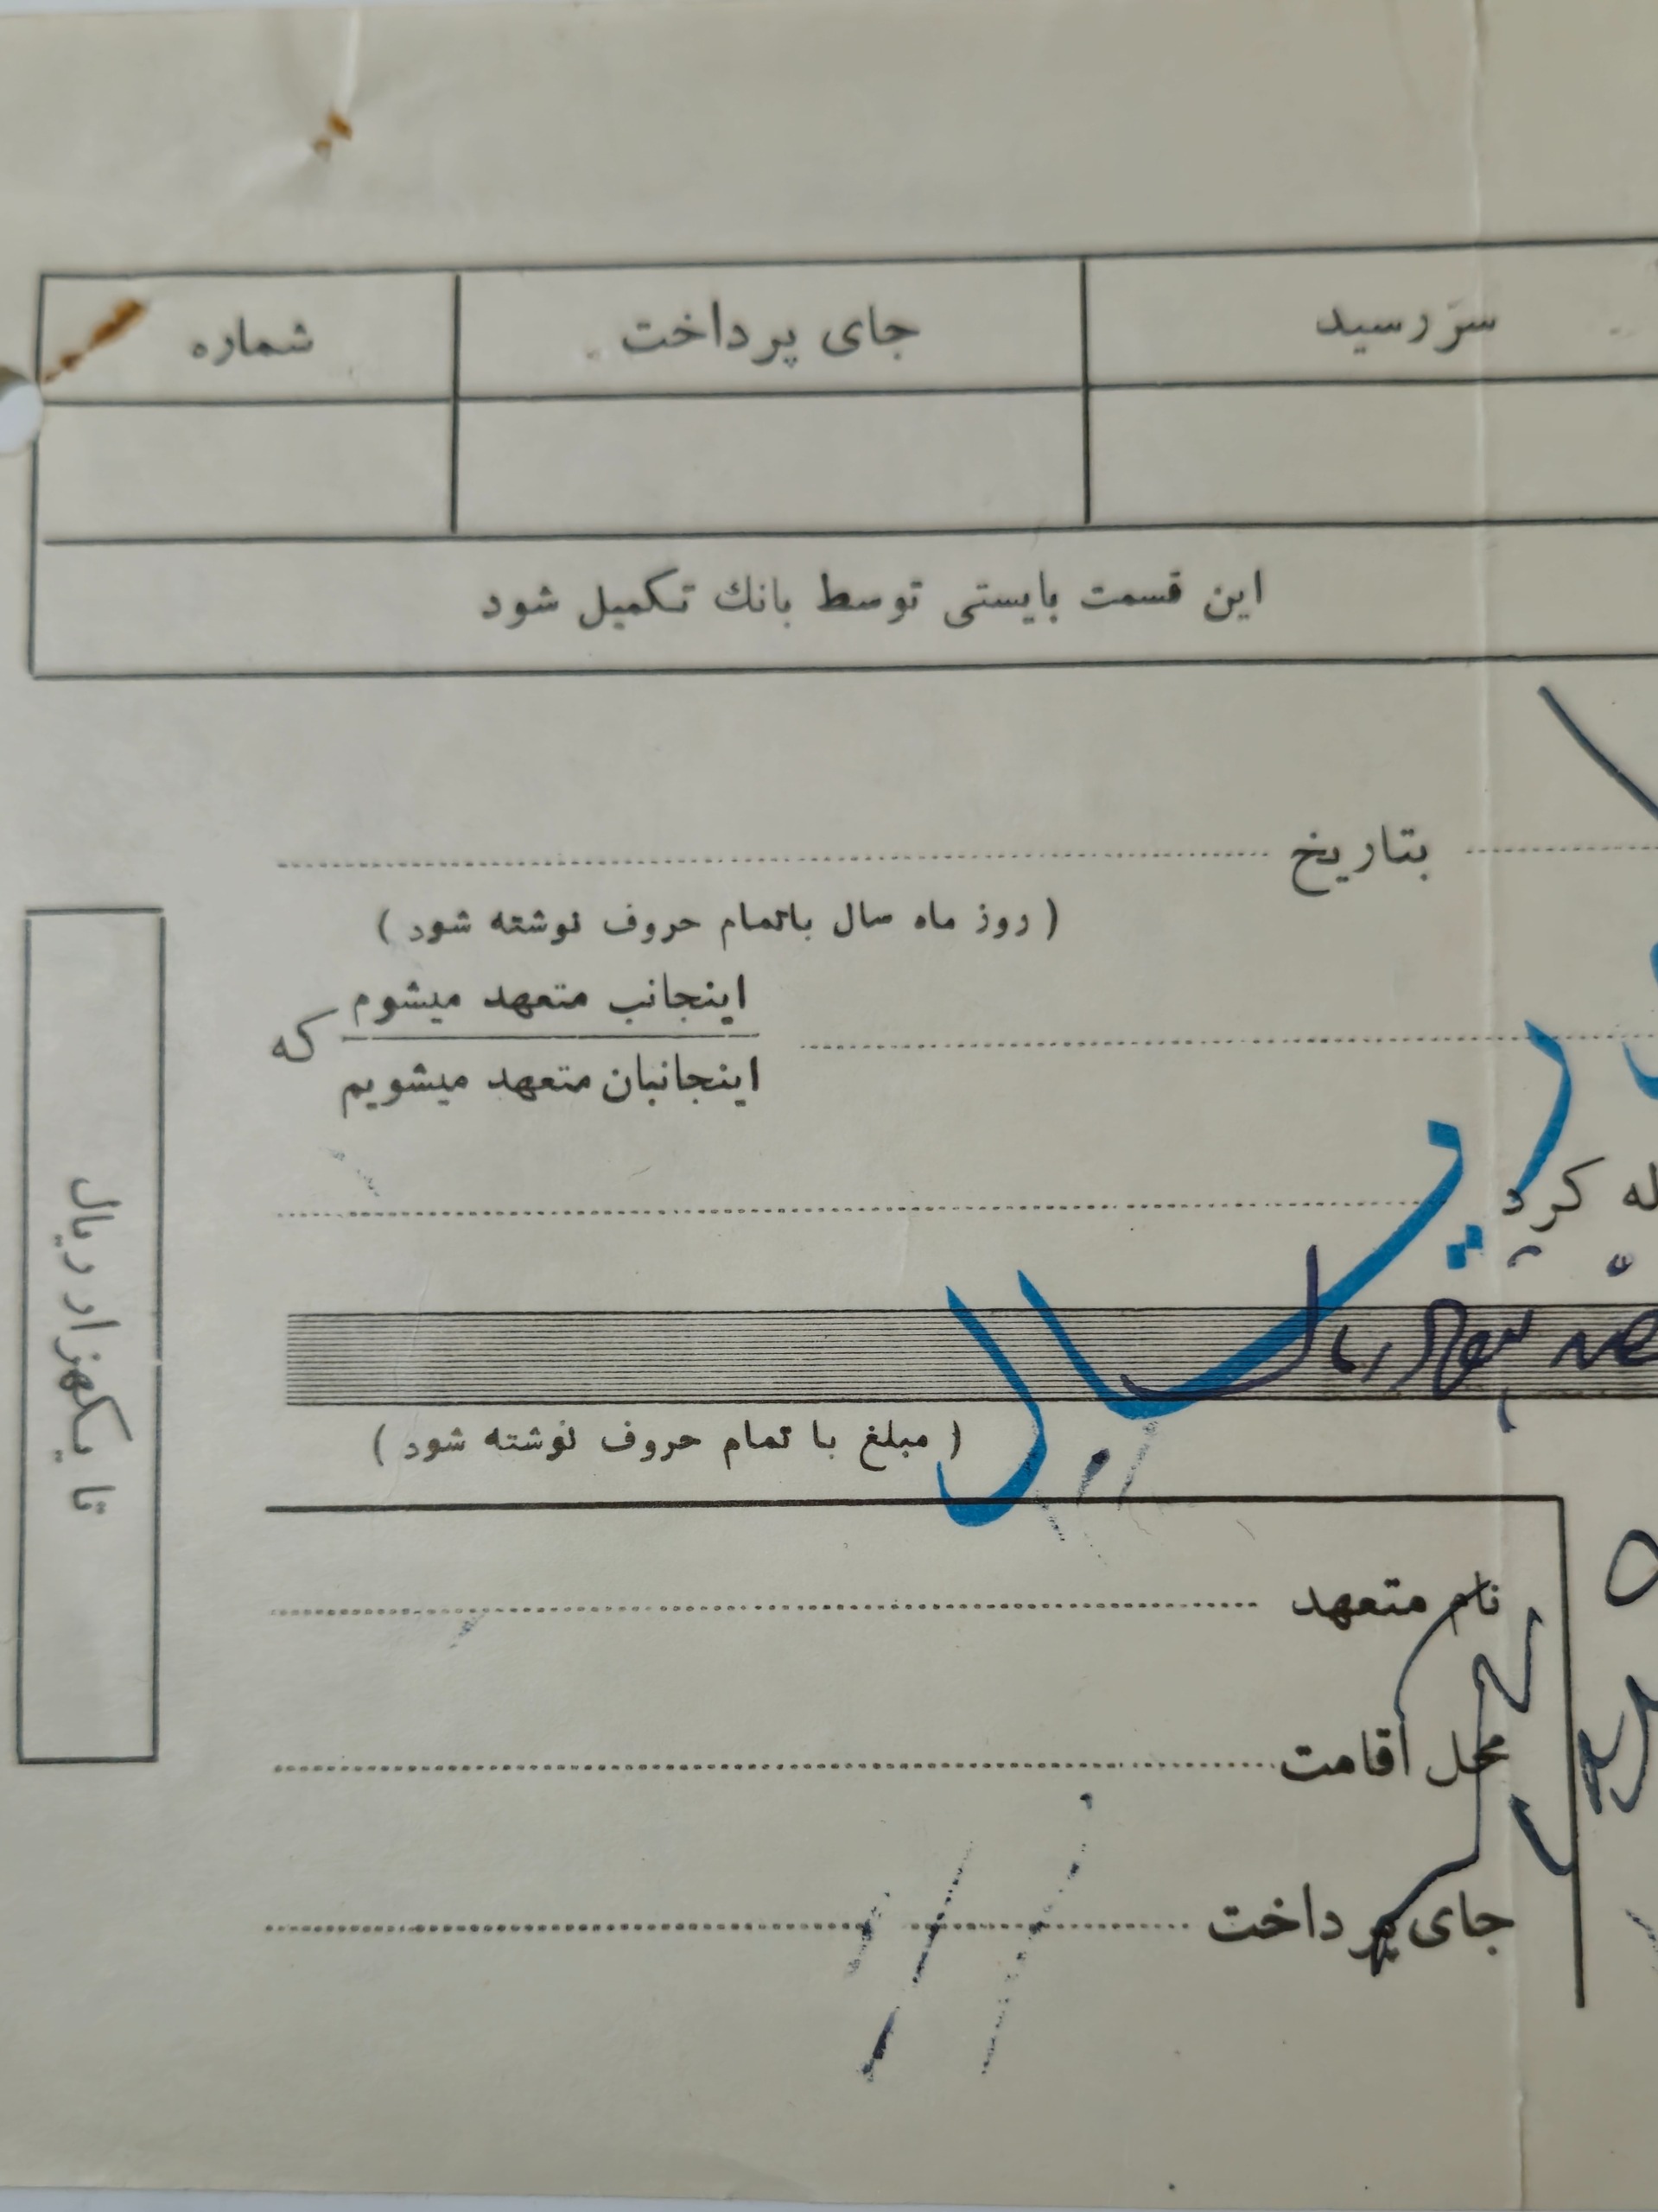 سررسید جای پرداخت شماره
این قسمت بایستی توسط بانك تکمیل شود
بتاریخ
( روز ماه سال باتمام حروف نوشته شود )
اینجانب متعهد میشوم
که
اینجانبان متعهد میشویم
له کرد
ریال
( مبلغ با تمام حروف نوشته شود )
نام متعهد
محل اقامت
جای پرداخت
تا یکهزار ریال